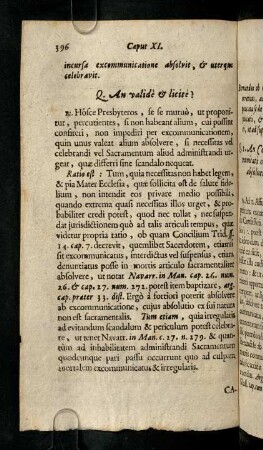 396 Caput XI.
incursa excommunicatione absolvit, & uterque
celebravit.
Q. An validè & licitè?
R. Hósce Presbyteros, si se mutuò, ut proponi-
tur, percutientes, si non habeant alium, cui possint
confiteri, non impediri per excommunicationem,
quin unus valeat alium absolvere, si necessitas vel
celebrandi vel Sacramentum aliud administrandi ur-
geat, quæ differri sine scandalo nequeat.
Ratio est: Tum, quia necessitas non habet legem,
& pia Mater Ecclesia, quæ sollicita est de salute fide-
lium, non intendit eos private medio possibili,
quando extrema quasi necessitas illos urget, &
probabiliter credit potest, quod nec tollat, nec suspen-
dat jurisdictionem quò ad talis articuli tempus, quæ
videtur propria ratio, ob quam Concilium Trid. s.
14. cap. 7. decrevit, quemlibet Sacerdotem, etiamsi
sit excommunicatus, interdictus vel suspensus, etiam
denuntiatus posse in mortis articulo sacramentaliter
absolvere, ut notat Navarr. in Man. cap. 26. num.
26. & cap. 27. num. 272. potest item baptizare, arg.
cap. præter 33. dist. Ergò à fortiori poterit absolvere
ab excommunicatione, cujus absolutio ex sui natura
non est sacramentalis. Tum etiam, quia irregularis
ad evitandum scandalum & periculum potest celebra-
re, ut tenet Navarr. in Man. c. 27. n. 179. &
in inhabilitatem administrandi Sacramentum
quodcunque pari passu occurrunt quo ad culpam
mortalem excommunicatus & irregularis.
CA-